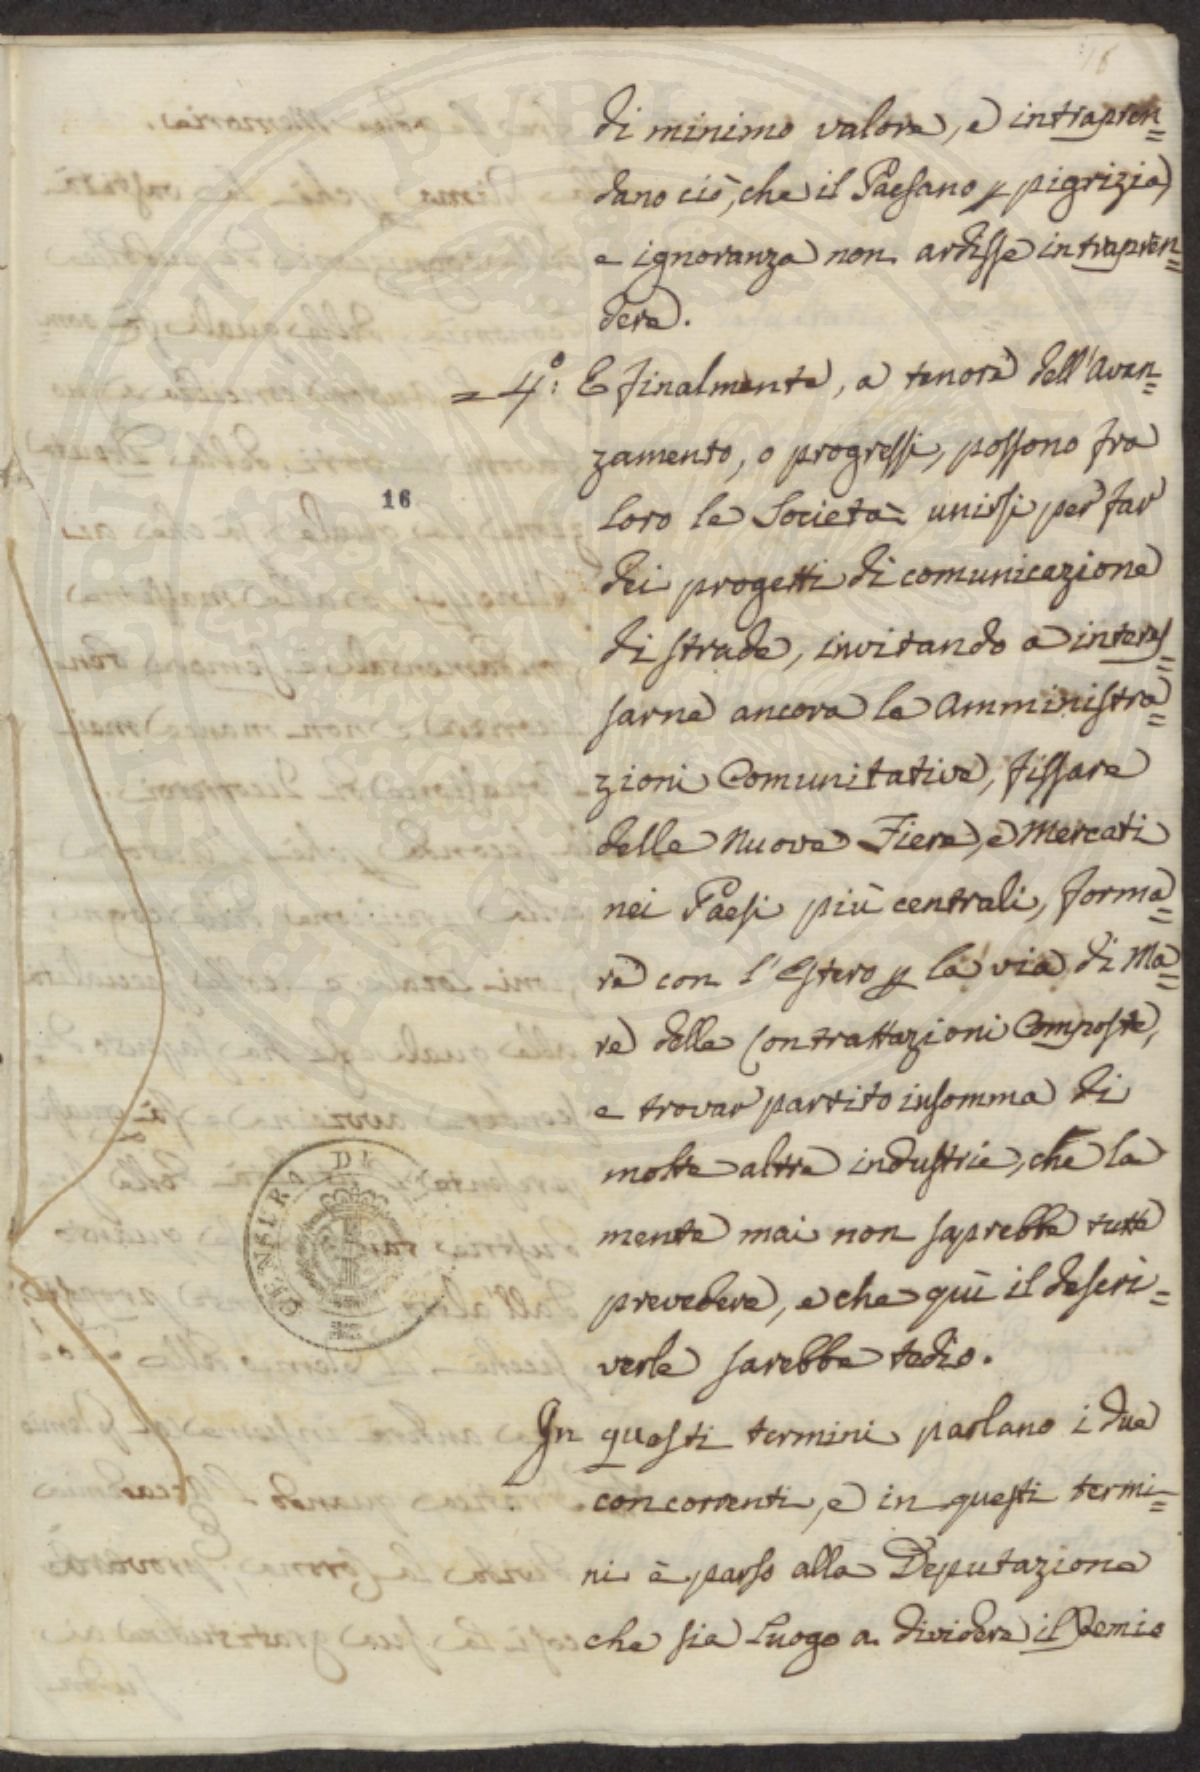 16
di minimo valore, e intrapren=
dano ciò, che il Paesano p pigrizia,
e ignoranza non ardisse intrapren=
dere.
= 4°: E finalmente, a tenore dell'avan=
zamento, o progressi, possono fra
loro le Società unirsi per far
dei progetti di comunicazione
di strade, invitando a interes=
sarne ancora le Amministra=
zioni Comunitative, fissare
delle nuove Fiere, e Mercati
nei Paesi più centrali, forma=
re con l'Estero p la via di Ma=
re delle Contrattazioni Composte,
e trovar partito insomma di
molte altre industrie, che la
mente mai non saprebbe tutte
prevedere, e che quì il descri=
verle sarebbe tedio.
In questi termini parlano i due
concorrenti, e in questi termi=
ni è parso alla Deputazione
che sia Luogo a dividere il Premio
16
CENSURA DI